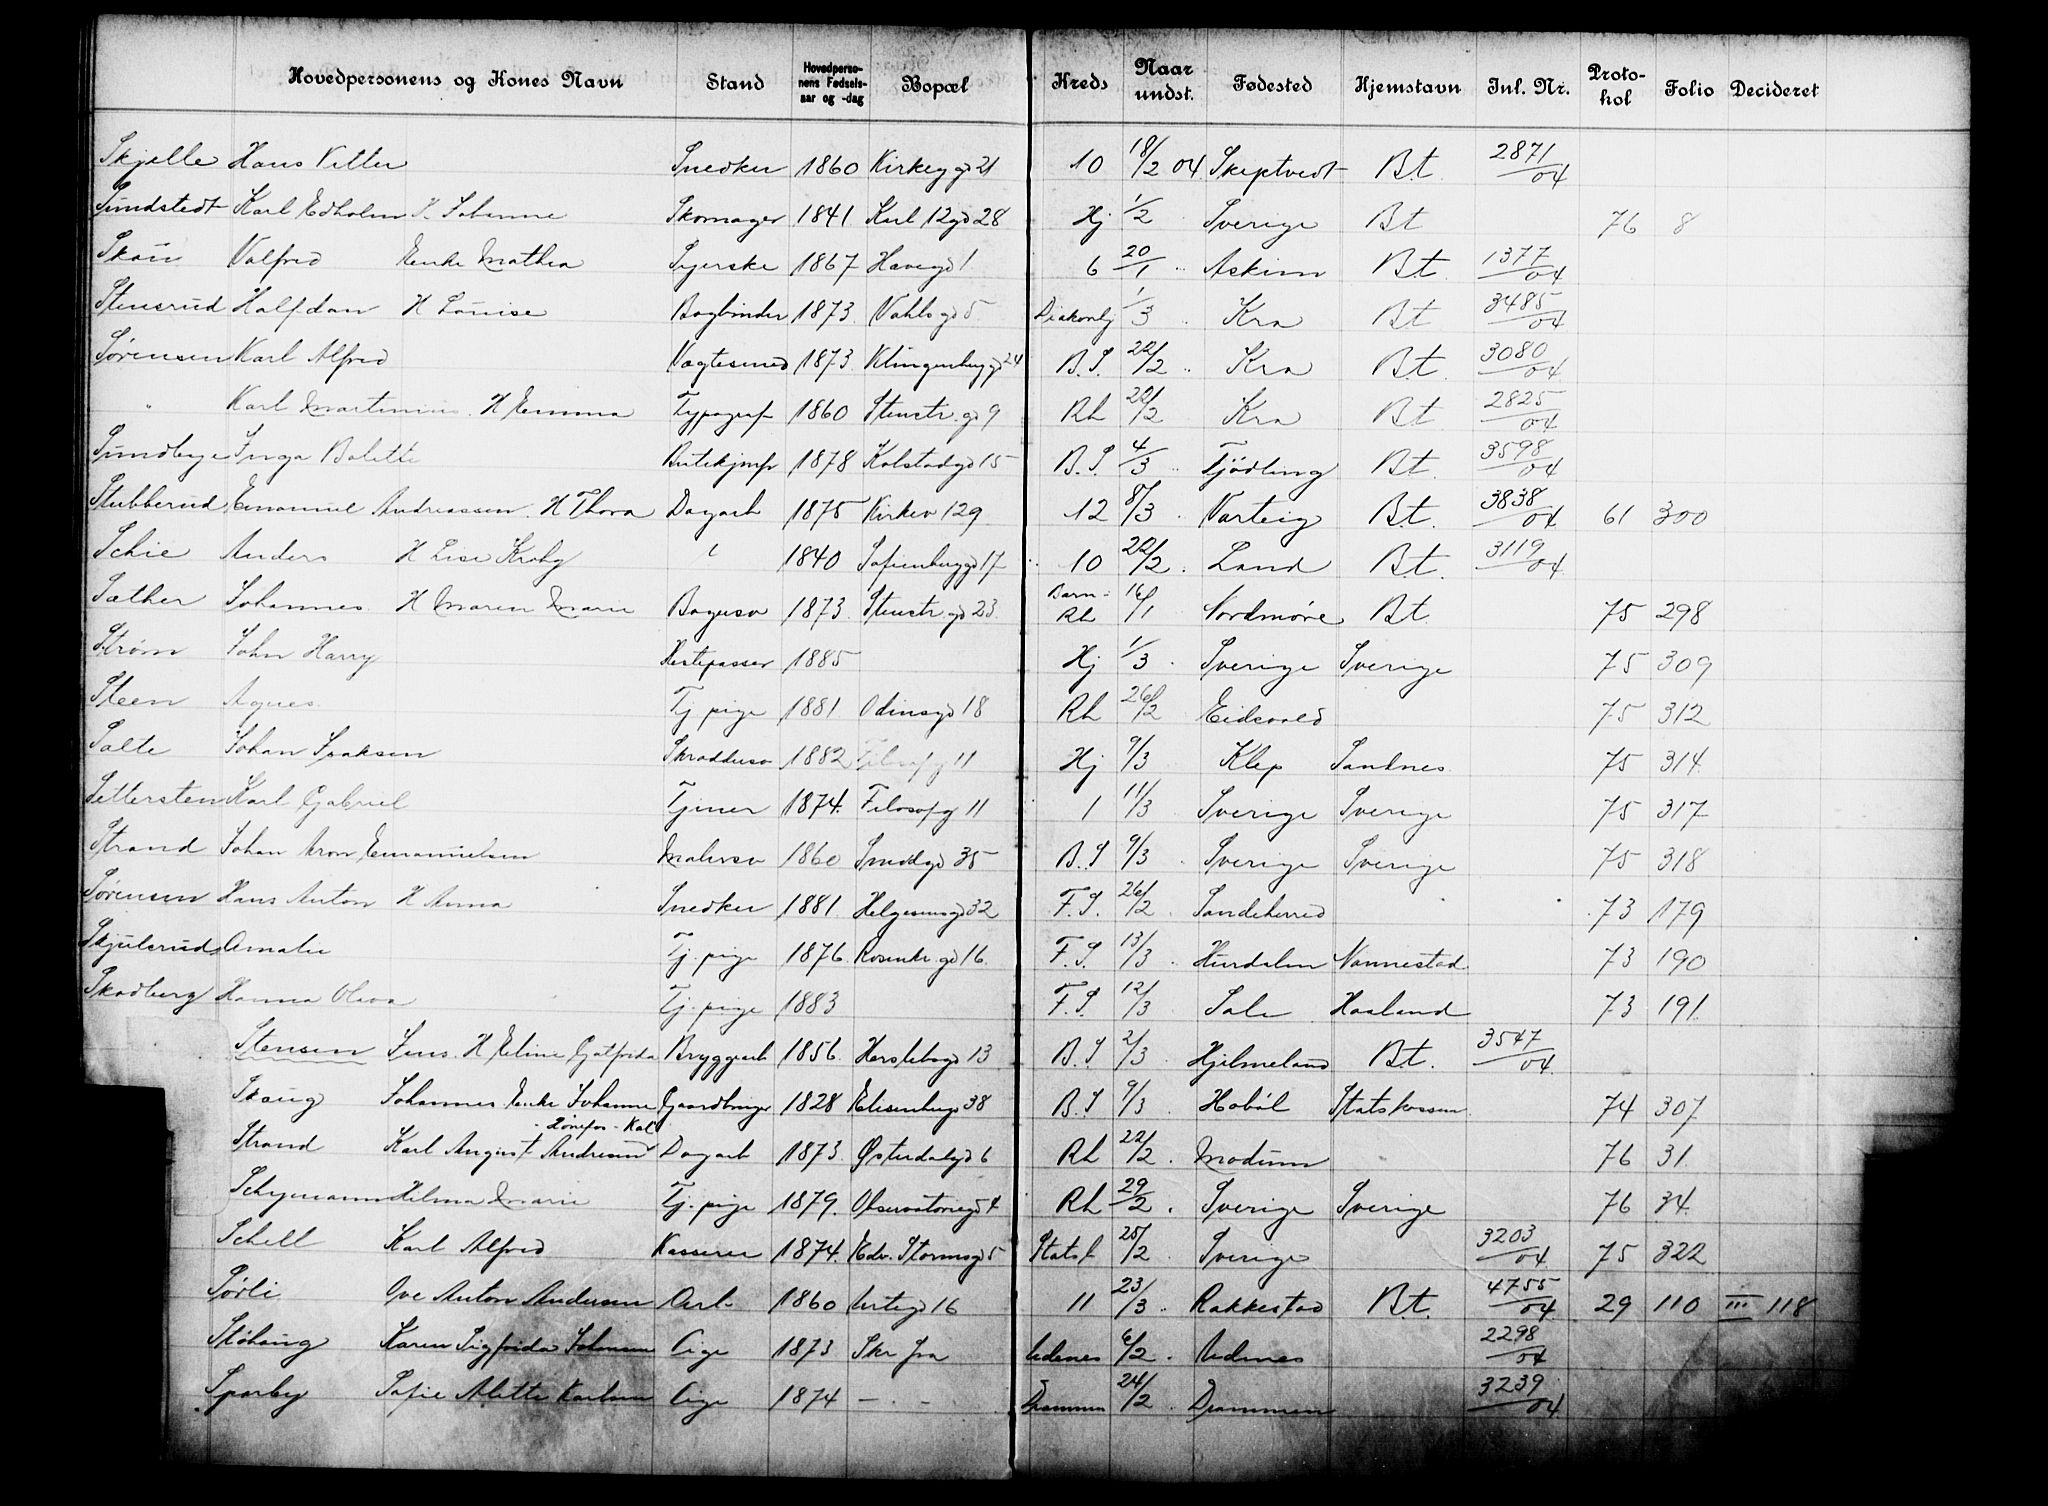 Hovedpersonens og Kones Navn Stand Hovedpersonens Fødselsaar og -dag Bopæl Kreds Naar undst. Fødested Hjemstavn Inl. Nr. Protokol Folio Decideret
Skjelle Hans Vitter Snedker 1860 Kirkeg gd 21 10 18/2 04 Skeptvedt B.t. 2871/04
Sundstedt Karl Edholm H. Johanne Skomager 1841 Karl 12 gd 28 Hj 1/2 " Sverige Bt 76 8
Skau Valfred Enke Mathea Syerske 1867 Havegd 1 6 20/1 " Askim B.t. 1377/04
Stensrud Halfdan H Louise Bogbinder 1873 Vahls gd 5 Diakonhj 1/3 " Kra Bt 3485/04
Sørensen Karl Alfred Vægtesmed 1873 Klingenberg gd 24 B.S. 22/2 " Kra B.t. 3080/04
" Karl Martinius H Emma Typograf 1860 Stenstr. gd 9 Rh 22/2 Kra Bt 2825/04
Sundbye Inga Bolette Butikjmfr 1878 Kolstadgd 15 B.S. 4/3 " Tjödling B.t. 3598/04
Stubberud Emanuel Andreassen. H Thora Dagarb 1875 Kirkev 129 12 8/3 " Varteig B.t. 3838/04 61 300
Schie Anders H Lise Kroby " 1840 Sofienberggd 17 10 22/2 " Land B.t. 3119/04
Sæther Johannes H Maren Marie Bagersv 1873 Stenstr gd 23 Barn- Rh 16/1 Nordmøre B.t. 75 298
Strøm John Harry Hestepasser 1885 Hj 1/3 " Sverige Sverige 75 309
Steen Agnes Tj. pige 1881 Odinsgd 18 Rh 26/2 Eidsvold 75 312
Salte Johan Isaksen Skræddersv 1882 Filosofg 11 Hj 9/3 Klep Sandnes 75 314
Settersten Karl Gabriel Tjener 1874. Filosofg 11 1 11/3 Sverige Sverige 75 317
Strand Johan Aron Emanuelsen Malersv 1860 Smedgd 35 B.S 9/3 " Sverige Sverige 75 318
Sørensen Hans Anton H Anna Snedker 1881 Helgesensgd 32 F.S. 26/2 Sandeherred 73 179
Skjulsrud Amalie Tj. pige 1876. Rosenkr. gd 16 F.S. 13/3 " Hurdalen Nannestad 73 190
Skadberg Hanna Olava Tj. pige 1883 F.S. 12/3 Sole Haaland 73 191
Stensen Jens. H Eline Gotfrida Bryggearb 1856. Herslebsgd 13 B.S 2/3 Hjelmeland B.t. 3547/04
Skaug Johannes Enke Johanne Gaardbruger 1828 Elisenbergd 38 B.S 9/3 " Hobøl Statskassen 74 307
Strand Karl August Andresen Dagarb 1873 Østerdalsgd 6 Rh 22/2 " Modum 76 31
Schymann Helma Marie Tj. pige 1879. Observatoriegd 4 Rh 29/2 " Sverige Sverige 76 34
Schell Karl Alfred Kasserer 1874. Edv. Stormsgd 5 Statsf 25/2 " Sverige 3203/04 75 322
Sørli Ove Anton Andersen Arb. 1860 Urtegd 16 11 23/3 " Rakkestad B.t. 4755/04 29 110 III 118
Støhaug Karen Sigfrida Johnsen Pige 1873 Skr fra Udenes 6/2 " Udenes 2298/04
Sparby Sofie Alette Karlsen Pige 1874 — " — Drammen 24/2 " Drammen 3239/04